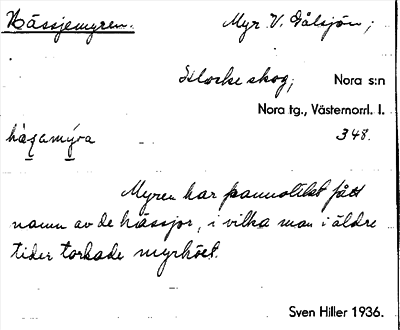 Hässjemyren.
Myr V. Gålsjön;
Klocke skog;
Nora s:n
Nora tg., Västernorrl. l.
348.
hạ̈ʒamýra
Myren har sannolikt fått
namn av de hässjor, i vilka man i äldre
tider torkade myrhöet.
Sven Hiller 1936.